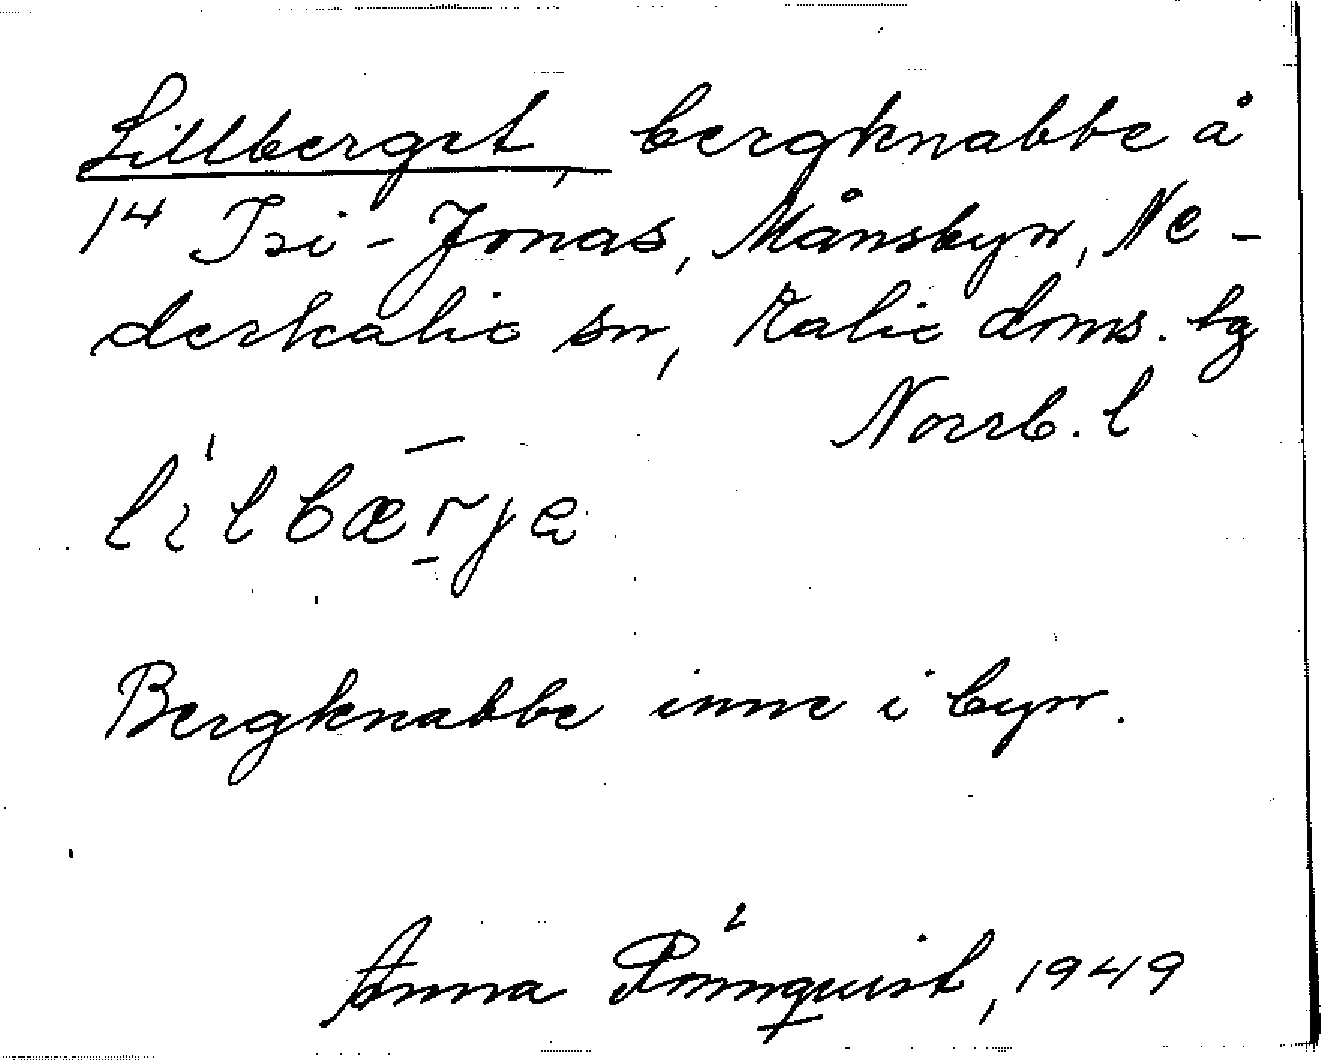 Lillberget, bergknabbe å
14 Isi-Jonas, Månsbyn, Ne-
derkalix sn, Kalix doms. tg
Norrb. l
lɩ́lbær̄ja
Bergknabbe inne i byn.
Anna Rönnquist, 1949